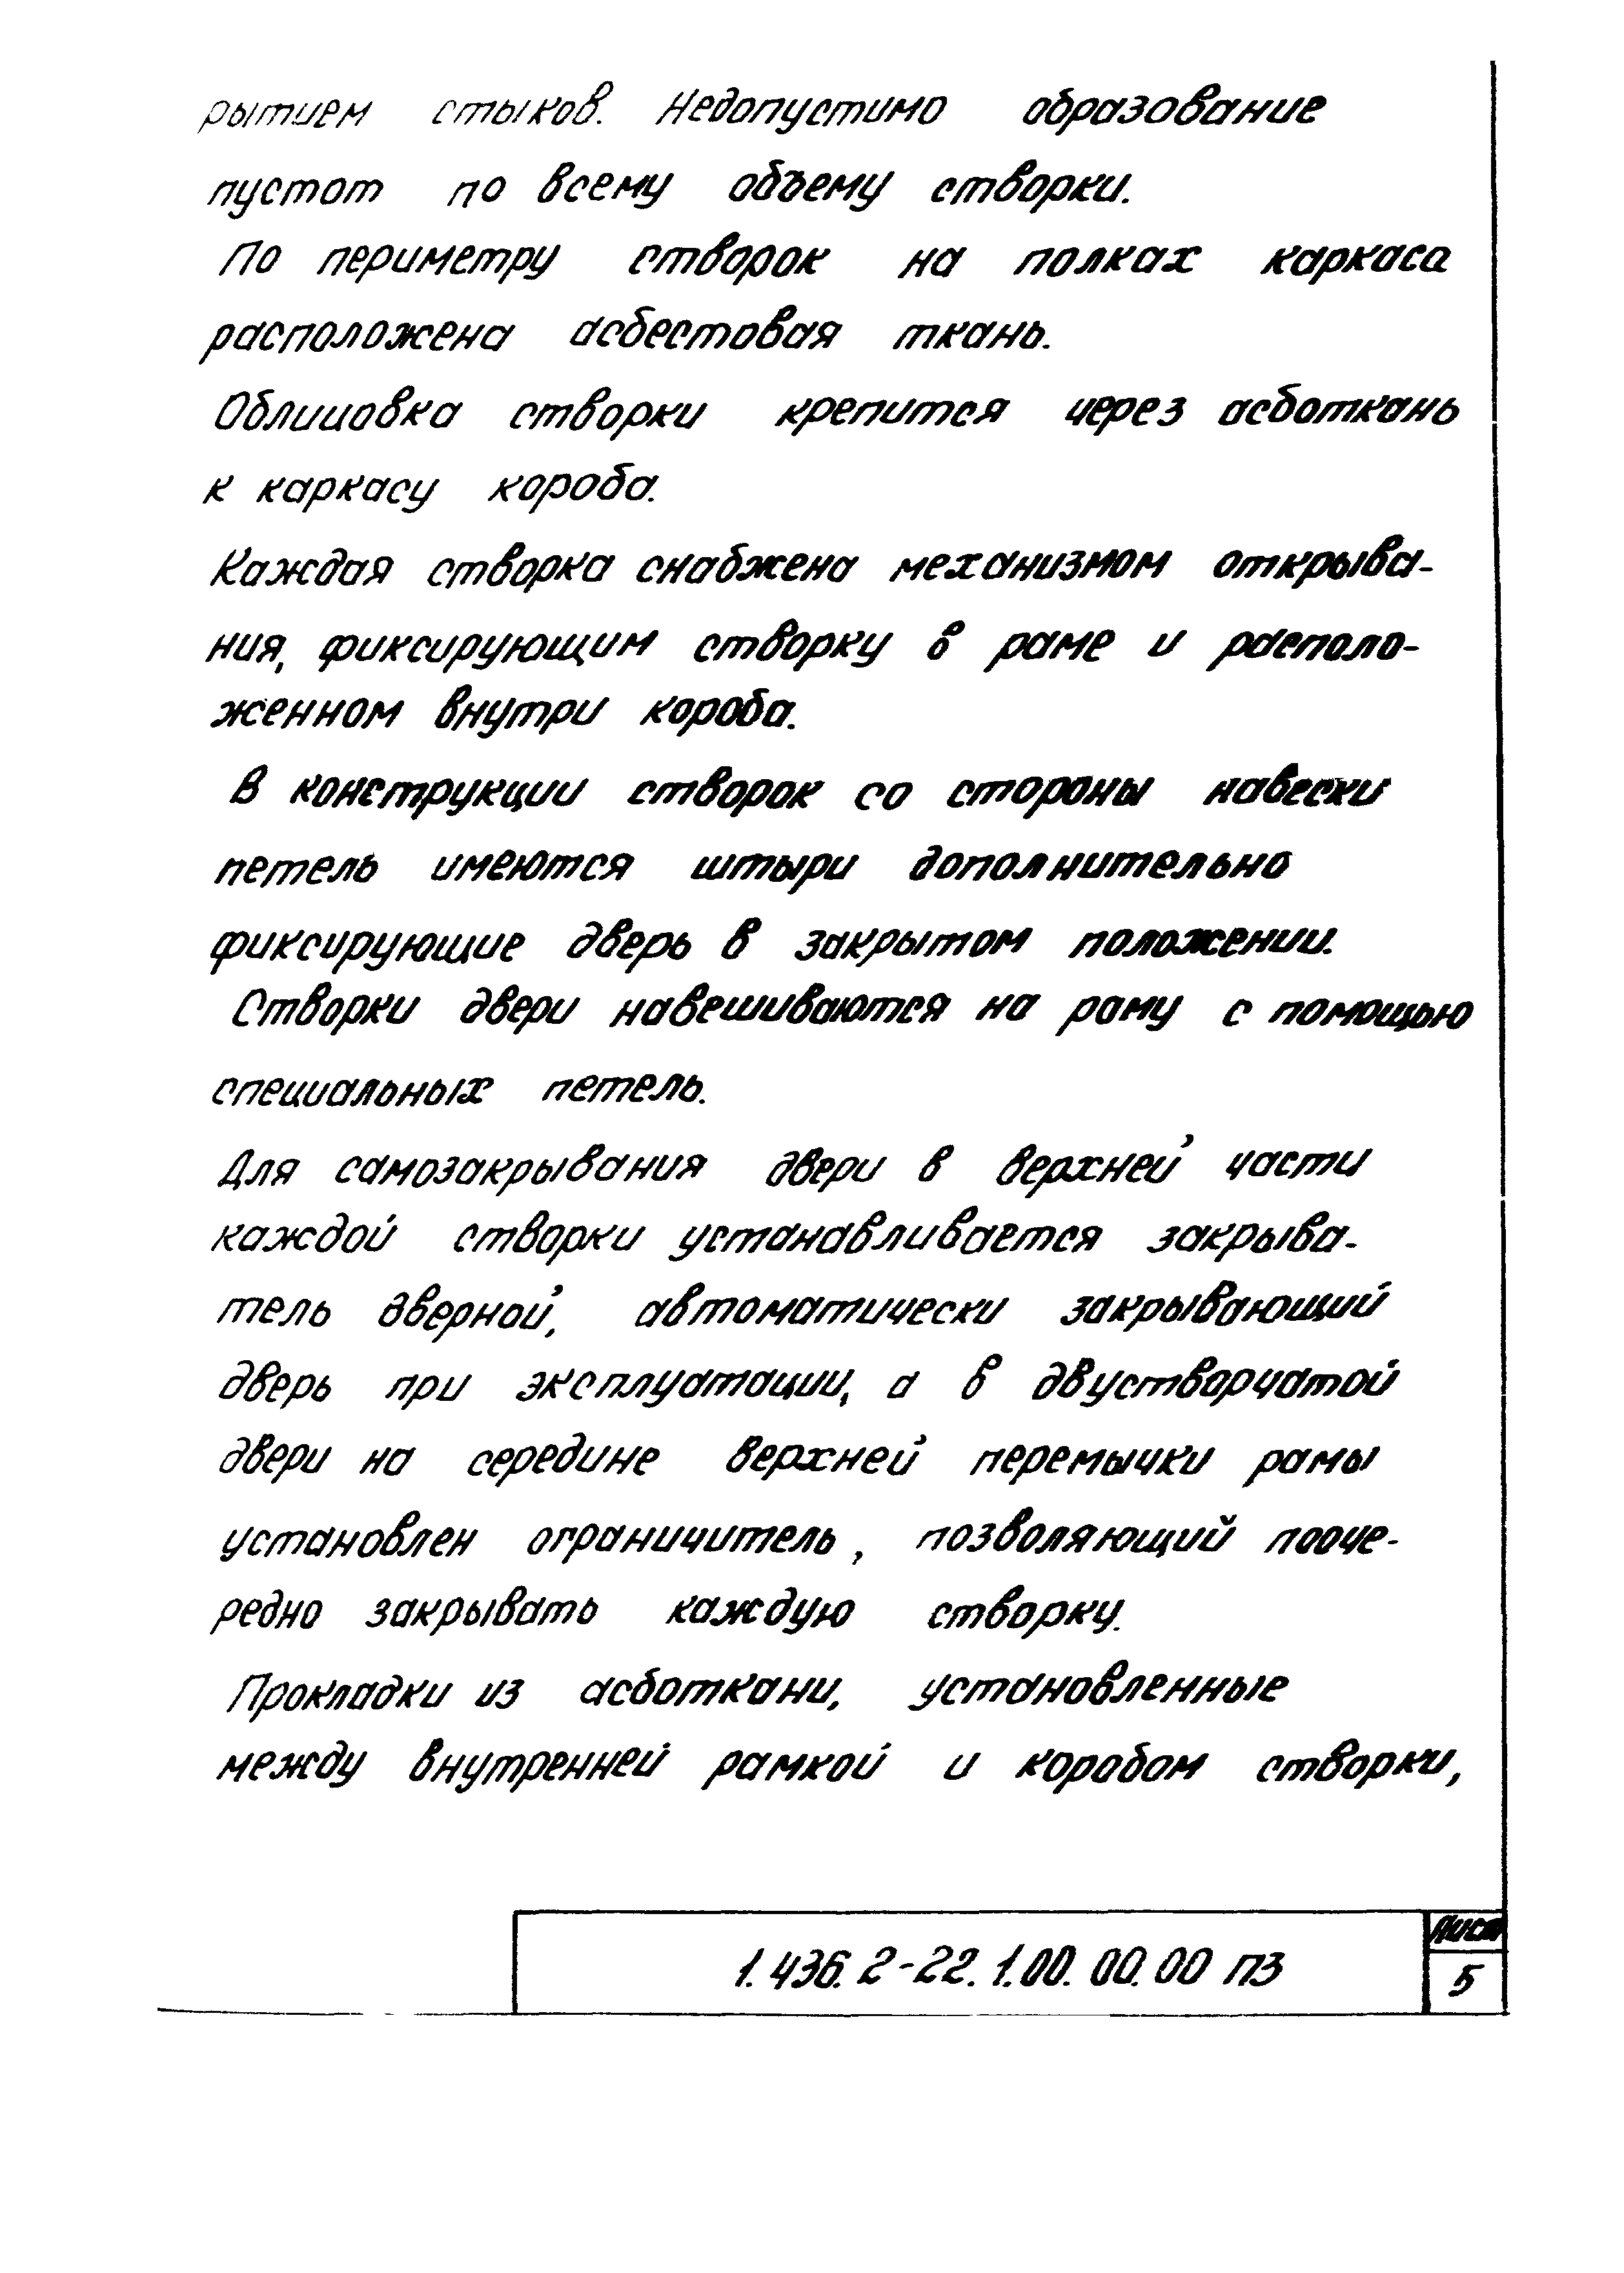 рытием стыков. Недопустимо образование
пустот по всему объему створки.
По периметру створок на полках каркаса
расположена асбестовая ткань.
Облицовка створки крепится через асботкань
к каркасу короба.
Каждая створка снабжена механизмом открыва-
ния, фиксирующим створку в раме и располо-
женном внутри короба.
В конструкции створок со стороны навески
петель имеются штыри дополнительно
фиксирующие дверь в закрытом положении.
Створки двери навешиваются на раму с помощью
специальных петель.
Для самозакрывания двери в верхней части
каждой створки устанавливается закрыва-
тель дверной, автоматически закрывающий
дверь при эксплуатации, а в двустворчатой
двери на середине верхней перемычки рамы
установлен ограничитель, позволяющий пооче-
редно закрывать каждую створку.
Прокладки из асботкани, установленные
между внутренней рамкой и коробом створки,
1.436.2-22.1.00.00.00 ПЗ
Лист
5